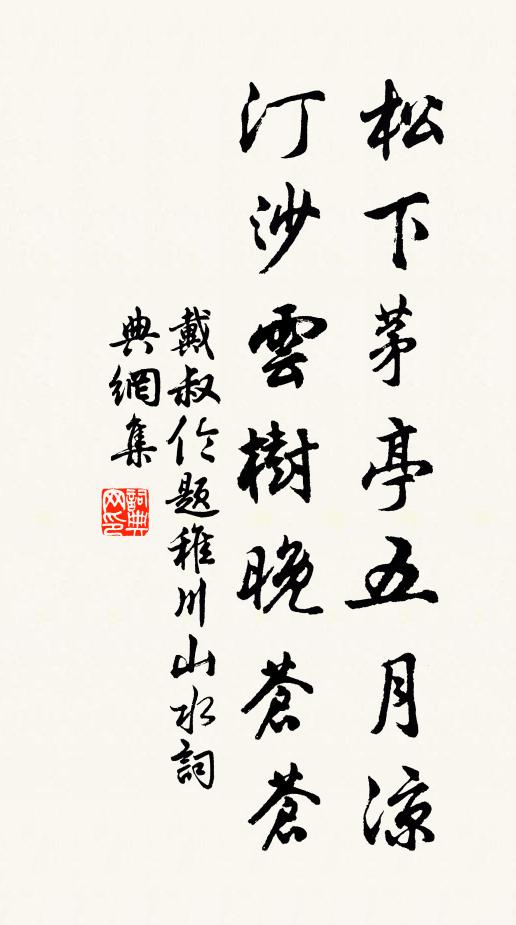 松下茅亭五月凉
汀沙雲樹晚蒼蒼
戴叔伦題稚川山水詞
典網集
詞典
网印